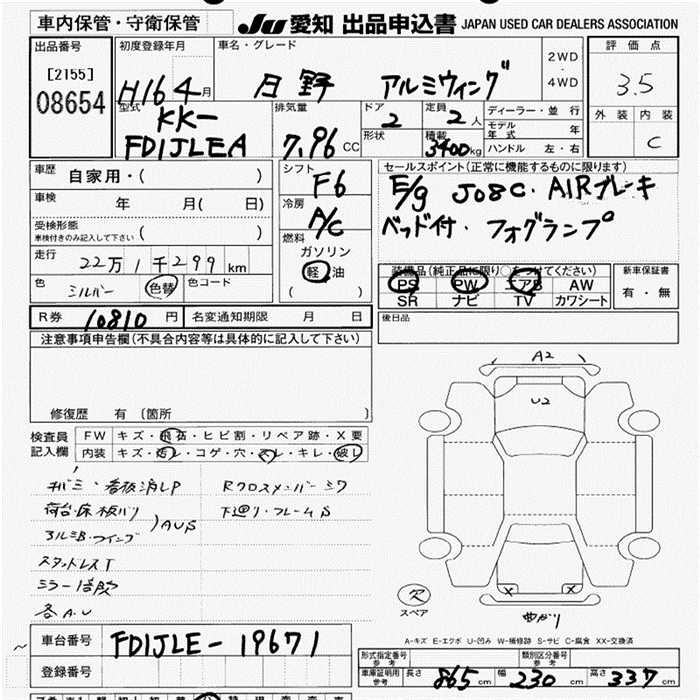 車内保管・守衛保管
JU 愛知 出品申込書 JAPAN USED CAR DEALERS ASSOCIATION
出品番号
[2155]
08654
初度登録年月
H16 4月
車名・グレード
日野 アルミウィング
2WD
・
4WD
評価点
3.5
外装 内装
C
型式
KK-
FD1JLEA
排気量
7.96 CC
ドア
2
定員
2人
形状
積載
3400kg
ディーラー・並行
モデル年式 年
ハンドル 左・右
車歴
自家用・( )
車検
年 月( 日)
受検形態
車検付きのみ記入して下さい ( )
走行
22万1千299km
色
シルバー 色替
色コード
シフト
F6
冷房
A/C
燃料
ガソリン
軽油
( )
セールスポイント(正常に機能するものに限ります)
E/g J08C・AIRブレーキ
ベッド付・フォグランプ
装備品(純正品に限り○をつけてください)
PS PW エアB AW
SR ナビ TV カワシート
新車保証書
有・無
R券 10810円
名変通知期限 月 日
後日品
注意事項申告欄(不具合内容等は具体的に記入して下さい)
修復歴 有〔箇所 〕
検査員
記入欄
FW キズ・飛石・ヒビ割・リペア跡・X要
内装 キズ・汚レ・コゲ・穴・スレ・キレ・破レ
キバミ・看板消しP Rクロスメンバーシワ
荷台・床板バリ
アルミB・ウイング
)AUS
下廻り・フレームS
スタットレスT
各A・U
A2
U2
X X
スペア
曲がり
A-キズ E-エクボ U-凹み W-補修跡 S-サビ C-腐食 XX-交換済
車台番号 FD1JLE-19671
登録番号
形式指定番号
参考
類別区分番号
参考
車庫証明用
参考
長さ 865cm 幅 230cm 高さ 337cm